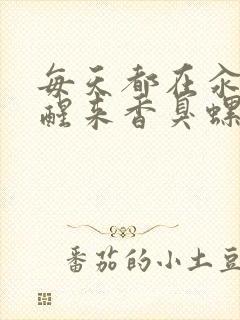 每天都在汆
醒来香臭螺
番茄的小土豆